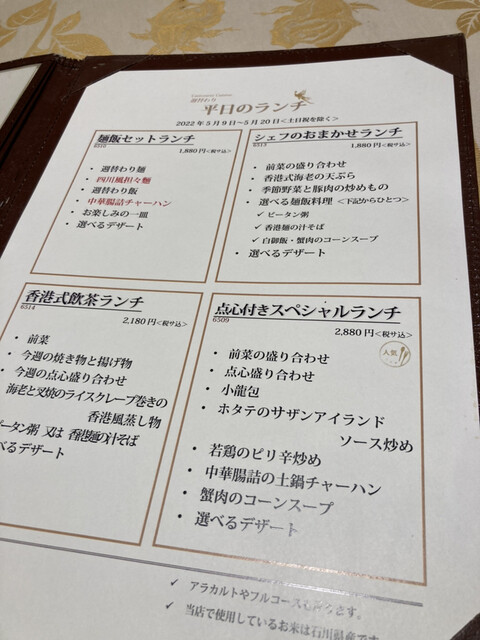 週替わり
平日のランチ
2022年5月9日～5月20日<土日祝を除く>
麺飯セットランチ
1,880円<税サ込>
・ 週替わり麺
・ 四川風担々麺
・ 週替わり飯
・ 中華腸詰チャーハン
・ お楽しみの一皿
・ 選べるデザート
シェフのおまかせランチ
6513
1,880円<税サ込>
・ 前菜の盛り合わせ
・ 香港式海老の天ぷら
・ 季節野菜と豚肉の炒めもの
・ 選べる麺飯料理 <下記からひとつ>
✓ ピータン粥
✓ 香港麺の汁そば
✓ 白御飯・蟹肉のコーンスープ
・ 選べるデザート
香港式飲茶ランチ
6514
2,180円<税サ込>
・ 前菜
・ 今週の焼き物と揚げ物
・ 今週の点心盛り合わせ
海老と叉焼のライスクレープ巻きの
香港風蒸し物
ータン粥 又は 香港麺の汁そば
べるデザート
点心付きスペシャルランチ
6509
2,880円<税サ込>
人気
・ 前菜の盛り合わせ
・ 点心盛り合わせ
・ 小龍包
・ ホタテのサザンアイランド
ソース炒め
・ 若鶏のピリ辛炒め
・ 中華腸詰の土鍋チャーハン
・ 蟹肉のコーンスープ
・ 選べるデザート
✓ アラカルトやフルコースも
✓ 当店で使用しているお米は石川県産です